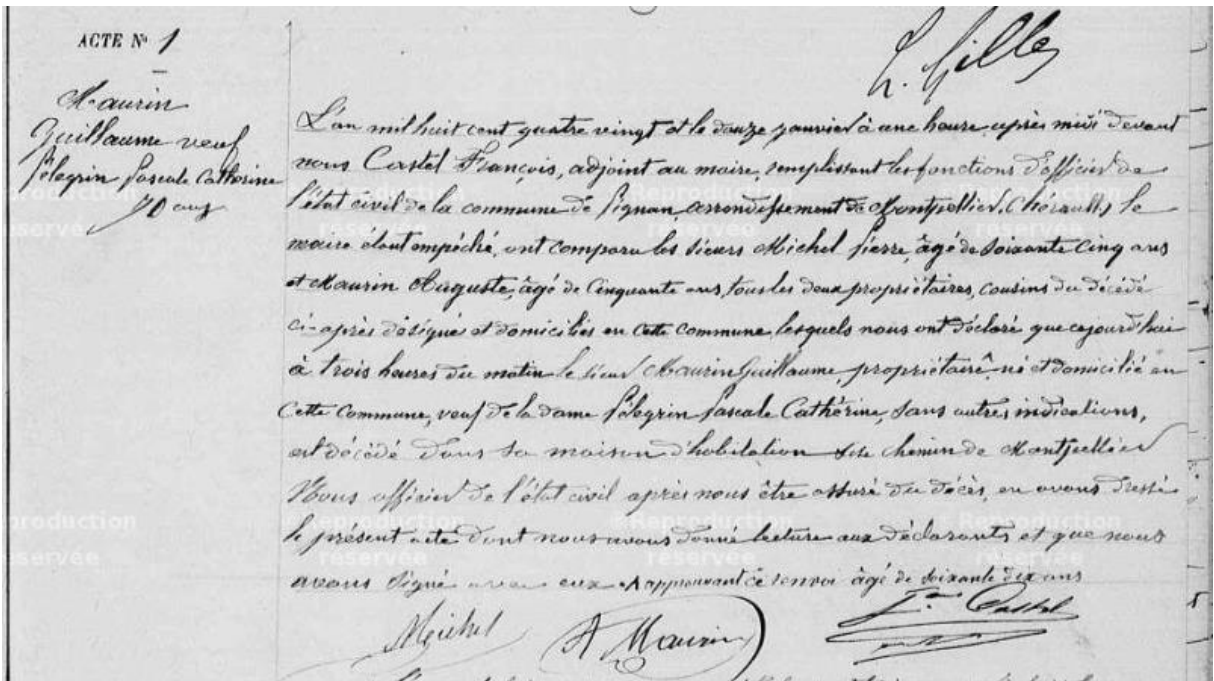 ACTE Nº 1
Maurin
Guillaume veuf
Pélegrin Pascale Catherine
70 ans
L. Gilles
L'an mil huit cent quatre vingt et le douze janvier à une heure après midi devant
nous Castel François, adjoint au maire, remplissant les fonctions d'officier de
l'état civil de la commune de Pignan, arrondissement de Montpellier (hérault) le
maire étant empêché, ont comparu les sieurs Michel Pierre, âgé de soixante cinq ans
et Maurin Auguste, âgé de Cinquante ans, tous les deux propriétaires, cousins du décédé
ci-après désigné et domiciliés en cette commune, lesquels nous ont déclaré que cejourd'hui
à trois heures du matin le sieur Maurin Guillaume, propriétaire, né et domicilié en
cette commune, veuf de la dame Pélegrin Pascale Cathérine, sans autres indications,
est décédé dans sa maison d'habitation sise chemin de Montpellier
Nous officier de l'état civil après nous être assuré du décès, en avons dressé
le présent acte dont nous avons donné lecture aux déclarants et que nous
avons signé avec eux. Approuvant ce renvoi âgé de soixante dix ans
Michel A Maurin Castel
©Reproduction
réservée